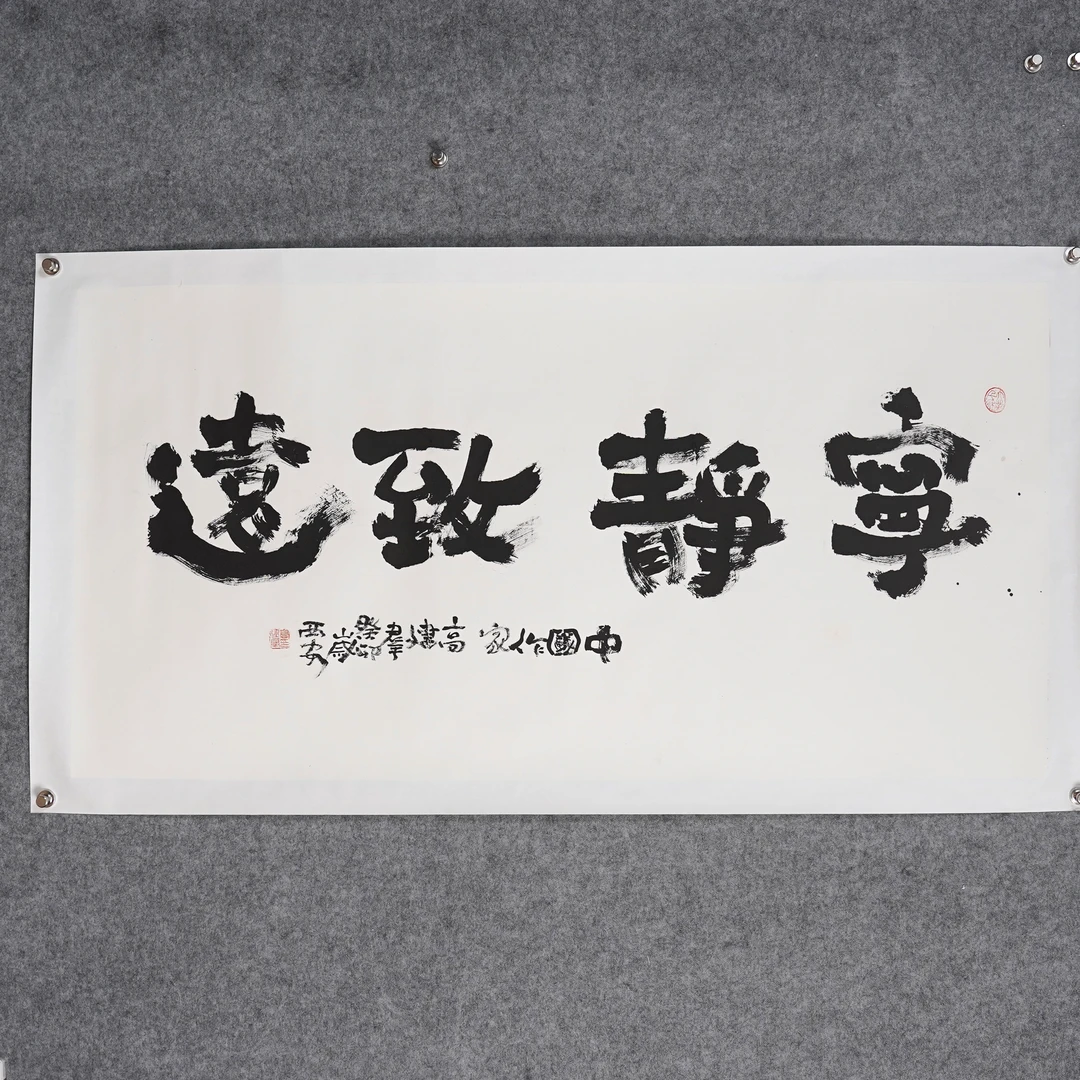 寧靜致遠
中國作家 高建羣 癸卯歲 西安